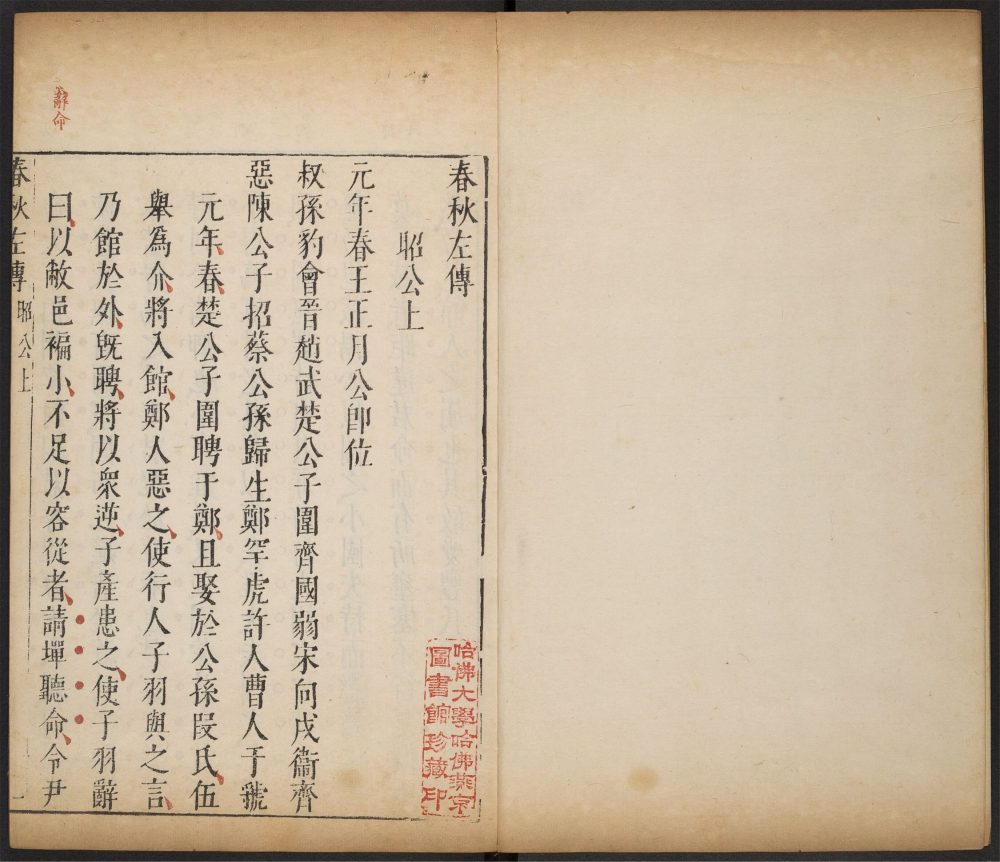 春秋左傳
昭公上
元年春王正月公卽位
叔孫豹會晉趙武楚公子圍齊國弱宋向戌衞齊
惡陳公子招蔡公孫歸生鄭罕虎許人曹人于虢
元年、春、楚公子圍聘于鄭、且娶於公孫段氏、伍
舉爲介、將入館、鄭人惡之、使行人子羽與之言、
乃館於外、旣聘、將以衆逆、子產患之、使子羽辭
曰、以敝邑褊小、不足以容從者、請墠聽命、令尹
春秋左傳 昭公上 一
辭命
哈佛大學哈佛燕京
圖書館珍藏印